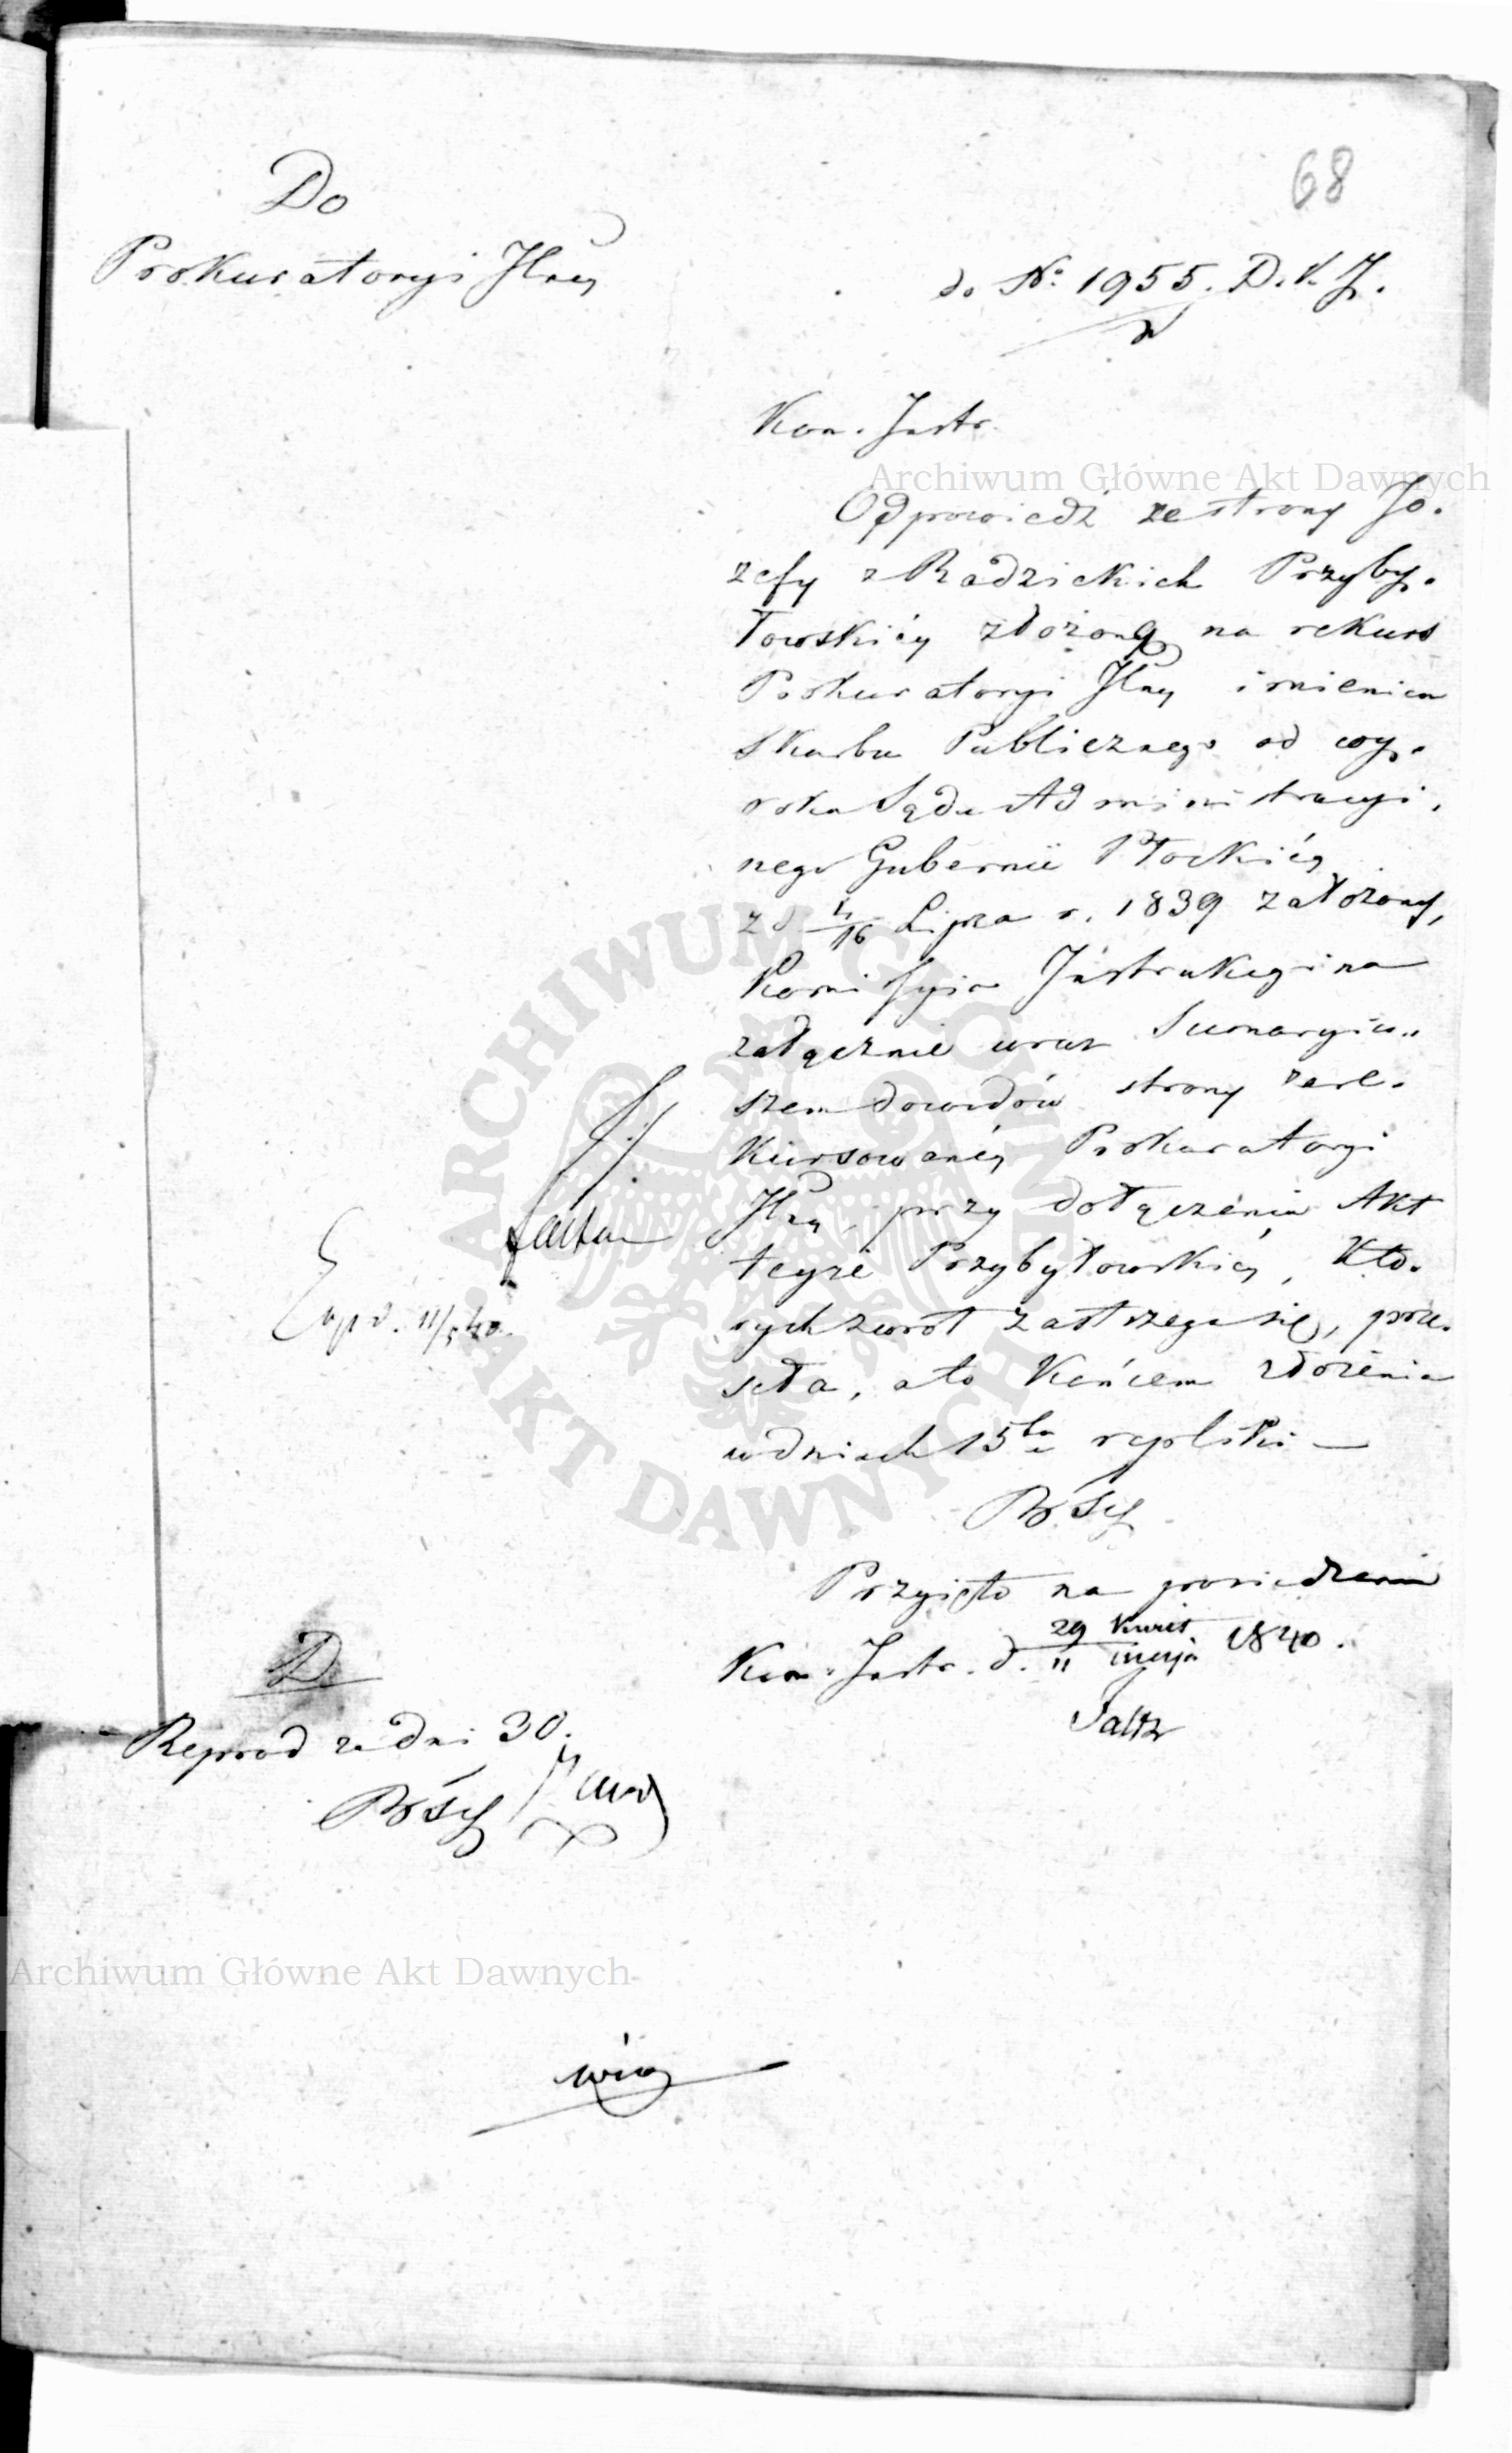 68
Do
Prokuratoryi Jlney
do No 1955. D. K. J.
Kom. Instr.
Odpowiedź ze strony Jó-
zefy z Radzickich Przyby-
łowskiéy złożoną na rekurs
Prokuratoryi Jlney imieniem
Skarbu Publicznego od wy-
roku Sądu Administracyi-
nego Gubernii Płockiéy
z d 4/16 Lipca r. 1839 założony,
Kommissyia Instrukcyina
załącznie wraz Sumaryu-
szem dowodów strony zare-
kursowanéy Prokuratoryi
Jlney, przy dołączeniu Akt
teyże Przybyłowskiéy, któ-
rych zwrot zastrzega się, prze-
seła, a to końcem złożenia
w dniach 15tu repliki —
Przyięto na posiedzeniu
Kom. Instr. d. 29 Kwiet. / 11 Maja 1840.
Exped. 11/5 40.
D
Reprod za dni 30.
Archiwum Główne Akt Dawnych
Archiwum Główne Akt Dawnych
ARCHIWUM GŁÓWNE AKT DAWNYCH